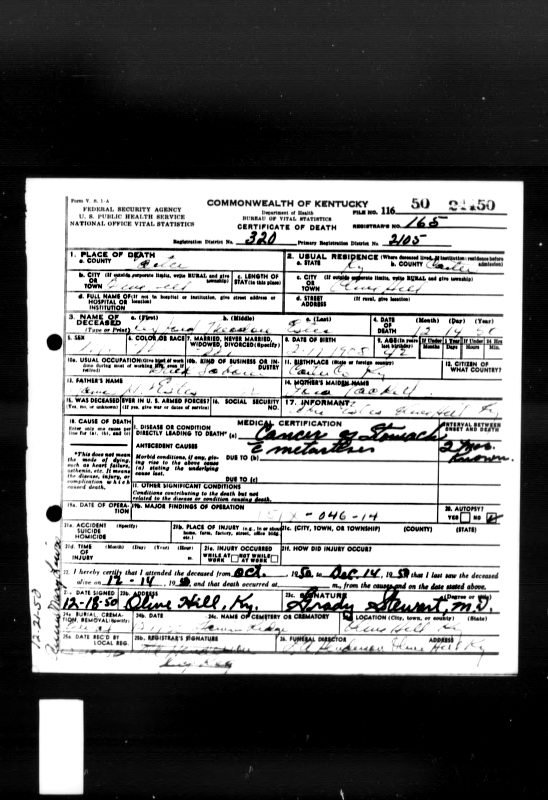 Form V. S. 1-A
FEDERAL SECURITY AGENCY
U. S. PUBLIC HEALTH SERVICE
NATIONAL OFFICE VITAL STATISTICS
COMMONWEALTH OF KENTUCKY
Department of Health
BUREAU OF VITAL STATISTICS
CERTIFICATE OF DEATH
FILE NO. 116 50 24150
REGISTRAR'S NO. 165
Registration District No. 320 Primary Registration District No. 2105
1. PLACE OF DEATH
a. COUNTY Carter
2. USUAL RESIDENCE (Where deceased lived. If institution: residence before admission)
a. STATE Ky b. COUNTY Carter
b. CITY (If outside corporate limits, write RURAL and give township)
OR TOWN Olive Hill
c. LENGTH OF STAY (in this place)
c. CITY (If outside corporate limits, write RURAL and give township)
OR TOWN Olive Hill
d. FULL NAME OF (If not in hospital or institution, give street address or location)
HOSPITAL OR INSTITUTION
d. STREET ADDRESS (If rural, give location)
3. NAME OF DECEASED (Type or Print)
a. (First) b. (Middle) Theodore c. (Last) Estes
4. DATE OF DEATH (Month) (Day) (Year) 12 14 50
5. SEX
6. COLOR OR RACE
7. MARRIED, NEVER MARRIED, WIDOWED, DIVORCED (Specify)
8. DATE OF BIRTH
9. AGE (In years last birthday)
If Under 1 Year Months Days
If Under 24 Hrs Hours Min.
10a. USUAL OCCUPATION (Give kind of work done during most of working life, even if retired)
10b. KIND OF BUSINESS OR INDUSTRY
11. BIRTHPLACE (State or foreign country) Carter Co Ky
12. CITIZEN OF WHAT COUNTRY?
13. FATHER'S NAME Estes
14. MOTHER'S MAIDEN NAME
15. WAS DECEASED EVER IN U. S. ARMED FORCES?
(Yes, no, or unknown) (If yes, give war or dates of service)
16. SOCIAL SECURITY NO.
17. INFORMANT Estes Olive Hill Ky
18. CAUSE OF DEATH
Enter only one cause per line for (a), (b), and (c)
MEDICAL CERTIFICATION
INTERVAL BETWEEN ONSET AND DEATH
I. DISEASE OR CONDITION DIRECTLY LEADING TO DEATH* (a) Cancer of Stomach
2 Mos. Known
*This does not mean the mode of dying, such as heart failure, asthenia, etc. It means the disease, injury, or complication which caused death.
ANTECEDENT CAUSES
Morbid conditions, if any, giving rise to the above cause (a) stating the underlying cause last.
DUE TO (b)
DUE TO (c)
II. OTHER SIGNIFICANT CONDITIONS
Conditions contributing to the death but not related to the disease or condition causing death.
19a. DATE OF OPERATION
19b. MAJOR FINDINGS OF OPERATION
151X-046-14
20. AUTOPSY? YES NO
21a. ACCIDENT SUICIDE HOMICIDE (Specify)
21b. PLACE OF INJURY (e.g., in or about home, farm, factory, street, office bldg., etc.)
21c. (CITY, TOWN, OR TOWNSHIP) (COUNTY) (STATE)
21d. TIME OF INJURY (Month) (Day) (Year) (Hour) m.
21e. INJURY OCCURRED WHILE AT WORK NOT WHILE AT WORK
21f. HOW DID INJURY OCCUR?
22. I hereby certify that I attended the deceased from Oct. , 1950, to Dec. 14, 1950 that I last saw the deceased
alive on 12-14, 1950, and that death occurred at m., from the causes and on the date stated above.
23a. DATE SIGNED 12-18-50
23b. ADDRESS Olive Hill, Ky.
23c. SIGNATURE (Degree or title) Grady Stewart, M.D.
24a. BURIAL, CREMATION, REMOVAL (Specify)
24b. DATE
24c. NAME OF CEMETERY OR CREMATORY
LOCATION (City, town, or county) (State) Olive Hill Ky
25a. DATE REC'D BY LOCAL REG.
25b. REGISTRAR'S SIGNATURE
26. FUNERAL DIRECTOR ADDRESS
Henderson Olive Hill Ky
12-21-50